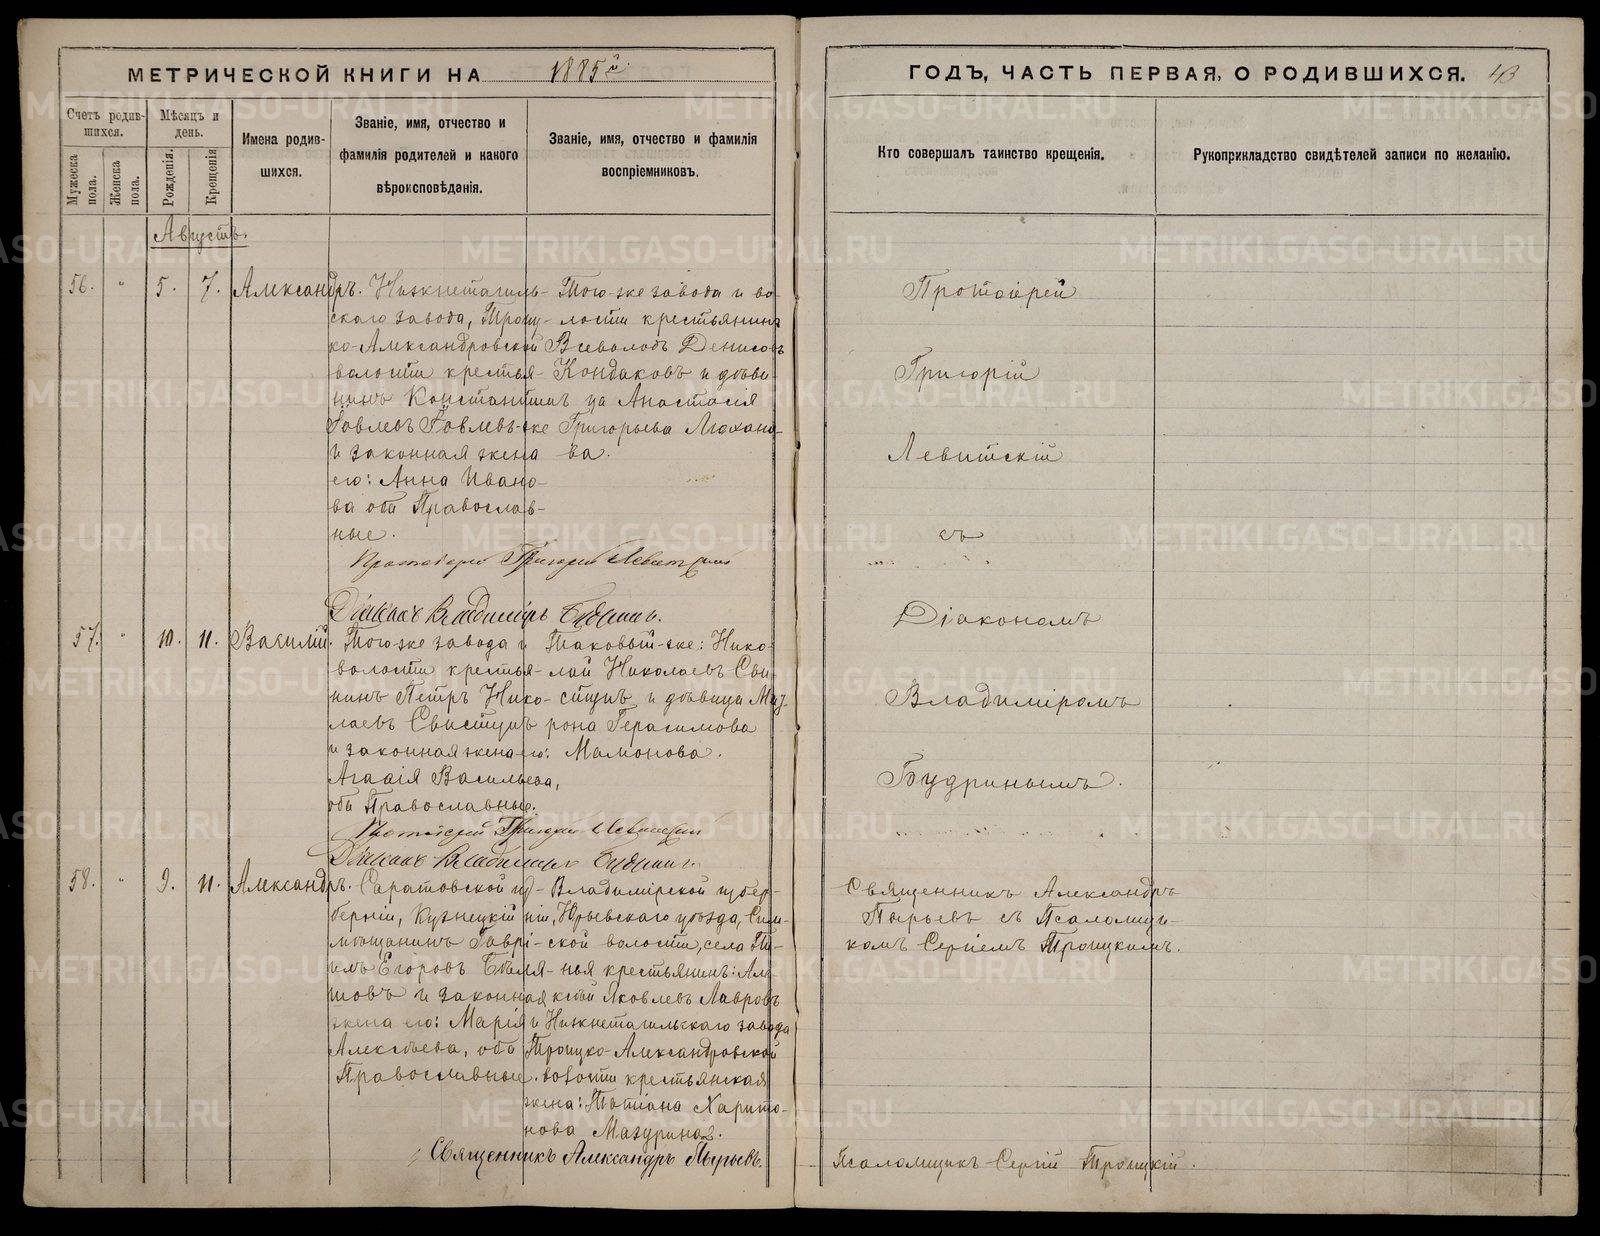 МЕТРИЧЕСКОЙ КНИГИ НА 1885й
ГОДЪ, ЧАСТЬ ПЕРВАЯ, О РОДИВШИХСЯ. 43
Счетъ родив-
шихся.
Мужеска пола.
Женска пола.
Мѣсяцъ и
день.
Рожденія.
Крещенія
Имена родив-
шихся.
Званіе, имя, отчество и
фамилія родителей и какого
вѣроисповѣданія.
Званіе, имя, отчество и фамилія
воспріемниковъ.
Кто совершалъ таинство крещенія.
Рукоприкладство свидѣтелей записи по желанію.
Августъ.
56. " 5. 7. Александръ.
Нижнетагиль-
скаго завода, Троиц-
ко-Александровской
волости крестья-
нинъ Константинъ
Іовлевъ Іовлевъ-же
и законная жена
его: Анна Ивано-
ва оба Православ-
ные.
Того-же завода и во-
лости крестьянинъ
Всеволодъ Денисовъ
Кондаковъ и дѣви-
ца Анастасія
Григорьева Ляхано-
ва.
Протоіерей
Григорій
Левитскій
съ
Діакономъ
Владиміромъ
Будринымъ.
Протоіерей Григорій Левитскій
Діаконъ Владиміръ Будринъ.
57. " 10. 11. Василій.
Того-же завода и
волости крестья-
нинъ Петръ Нико-
лаевъ Свистунъ
и законная жена его:
Агафія Васильева,
оба Православные.
Таковый-же: Нико-
лай Николаевъ Сви-
стунъ и дѣвица Мат-
рона Герасимова
Мамонова.
Протоіерей Григорій Левитскій
Діаконъ Владиміръ Будринъ.
58. " 9. 11. Александръ.
Саратовской гу-
берніи, Кузнецкій
мѣщанинъ Гаврі-
илъ Егоровъ
и законная
жена его: Марія
Алексѣева, оба
Православные.
Владимірской губер-
ніи, Юрьевскаго уѣзда, Сим-
ской волости, села
крестьянинъ: Але-
ксѣй Яковлевъ Лавровъ
и Нижнетагильскаго завода
Троицко-Александровской
волости крестьянская
жена: Татіана Харито-
нова Мазурина.
Священникъ Александръ
Пырьевъ съ Псаломщи-
комъ Сергіемъ Троицкимъ.
Священникъ Александръ Пырьевъ.
Псаломщикъ Сергій Троицкій.
METRIKI.GASO-URAL.RU